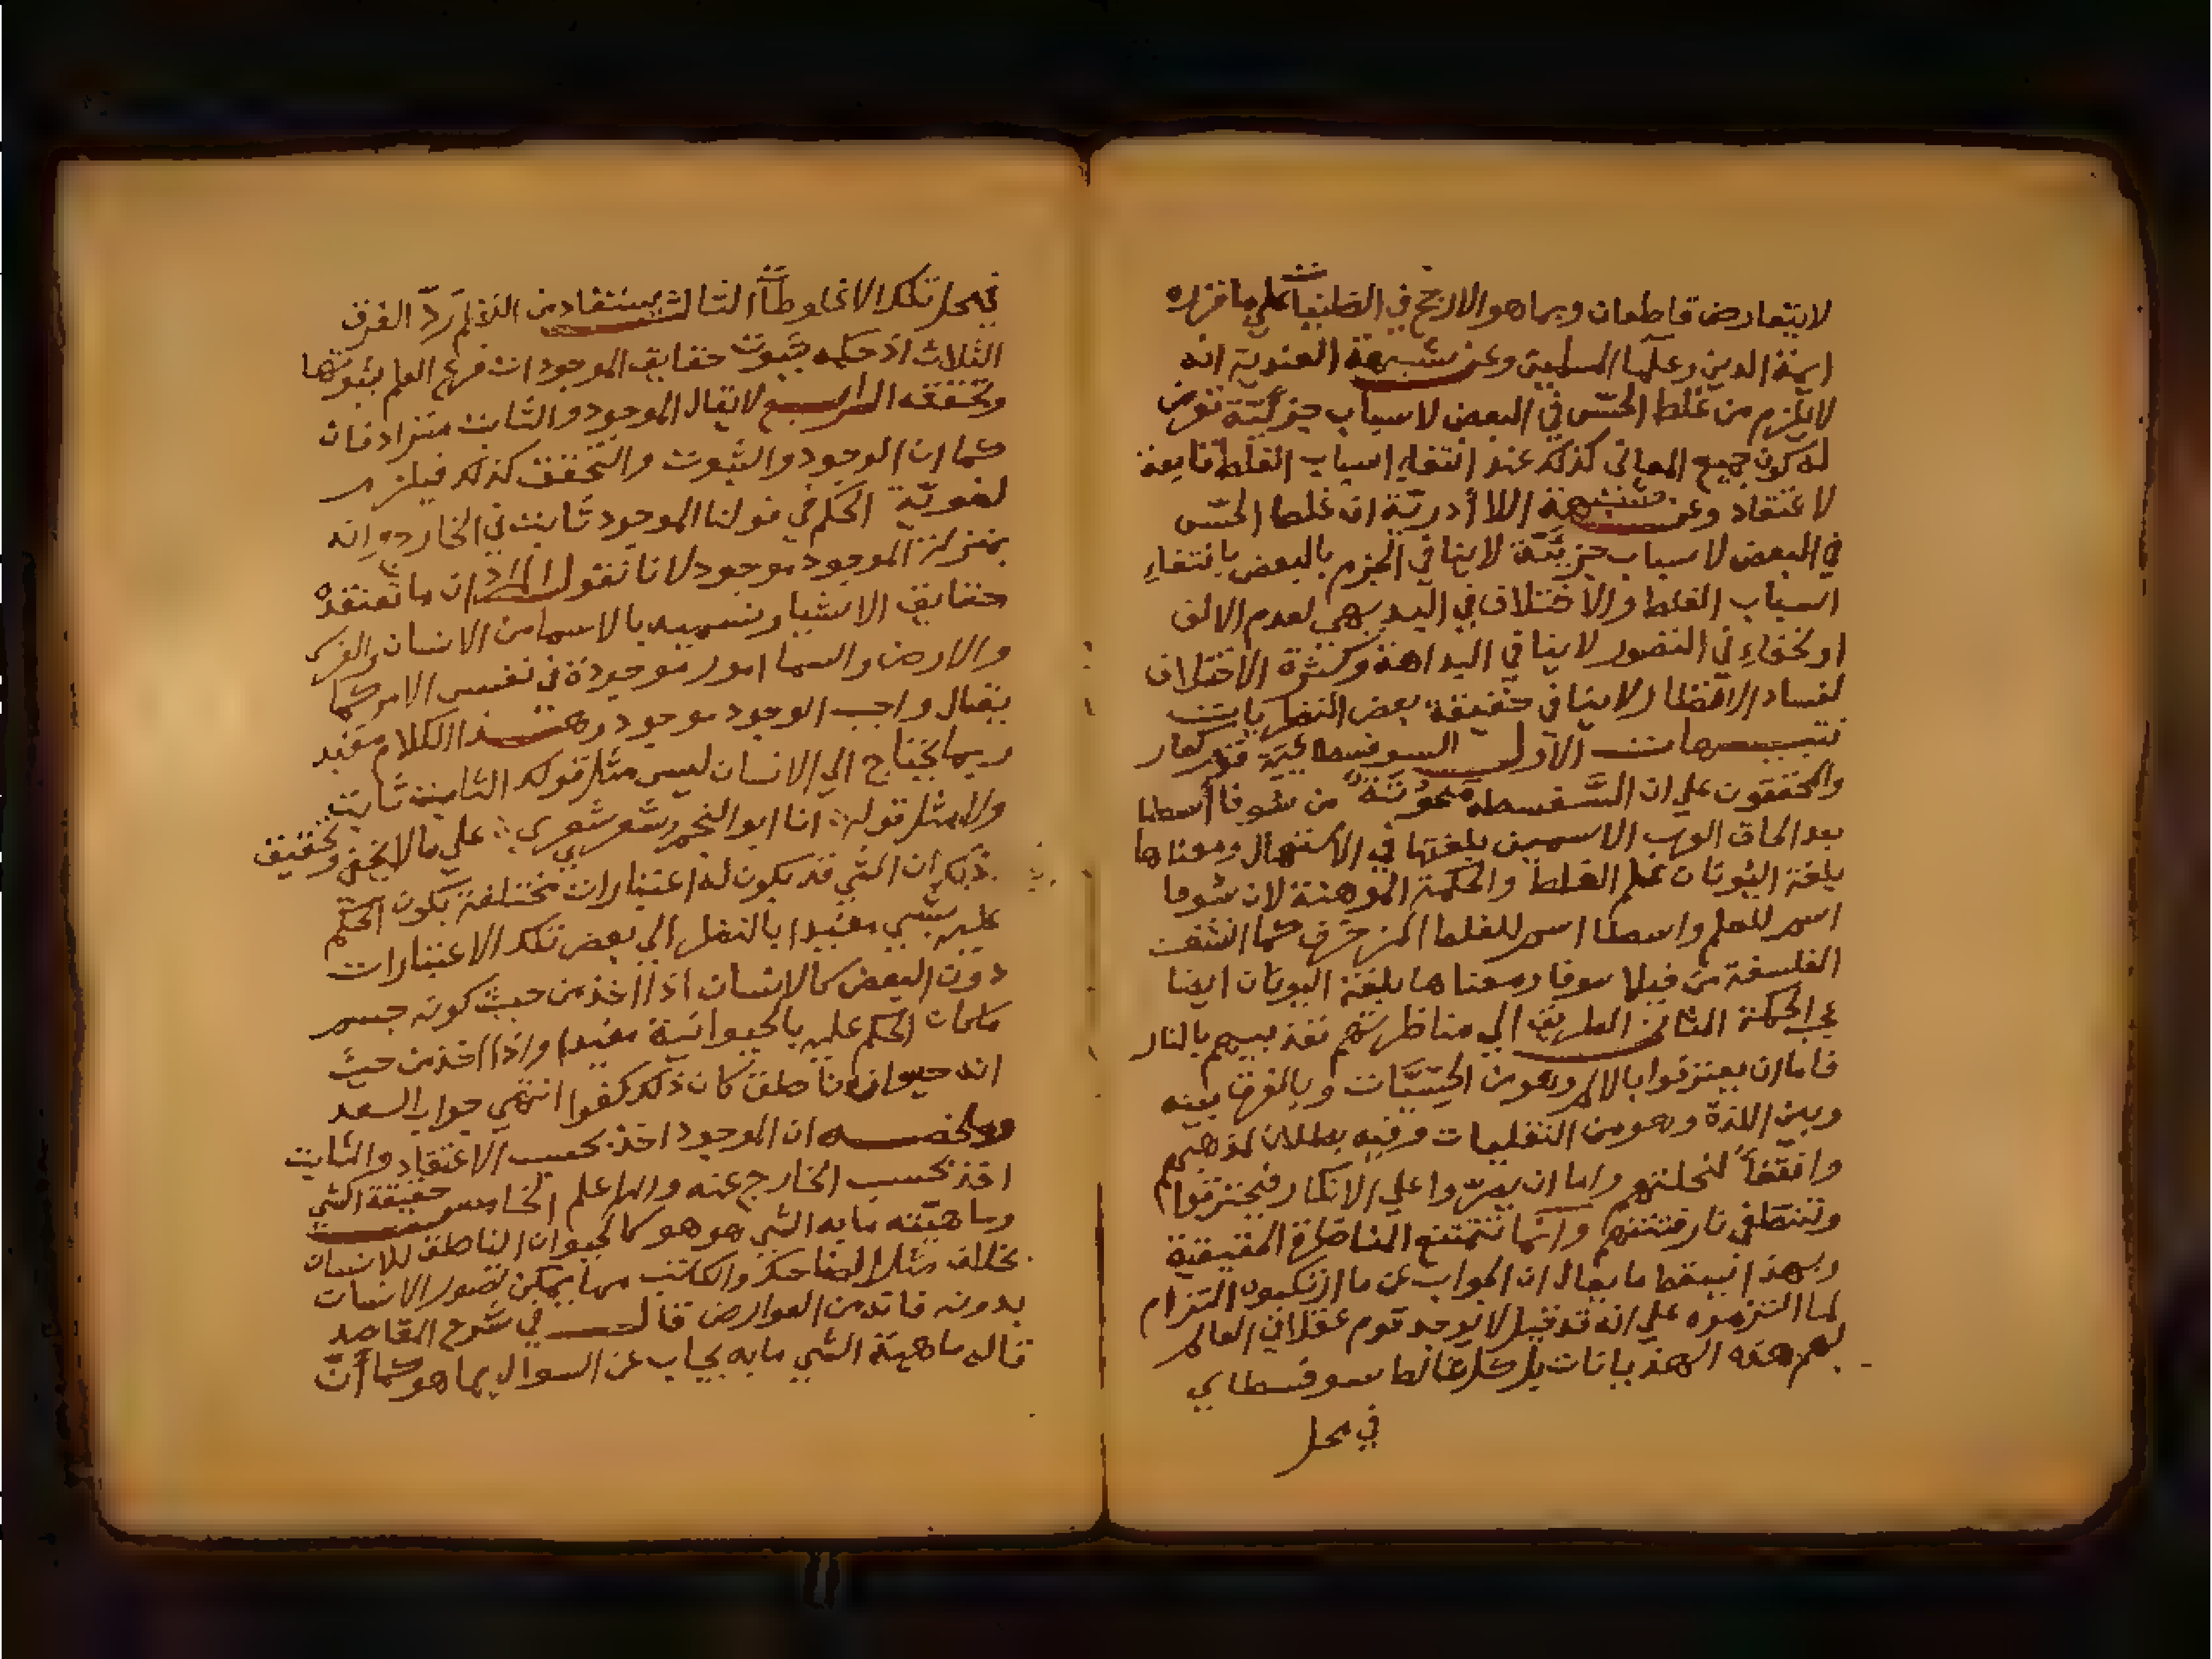 لا يتعارض قاطعان وبما هو الارجح في الظنيات على ما قرره
ايمة الدين وعلما المسلمين وعن شبهة العندية انه
لا يلزم من غلط الحسّ في البعض لاسباب جزئيّة
له كون جميع المعاني كذلك عند انتفاء اسباب الغلط تابعة
لاعتقاد وعن شبهة اللا أدريّة ان غلط الحسّ
في البعض لاسباب جزئيّة لا ينافي الجزم بالبعض بانتفاءِ
اسباب الغلط والاختلاف في البديهي لعدم الالف
او لخفاءِ في التصور لا ينافي البداهة وكثرة الاختلاف
لفساد الانظار لا ينافي حقيقة بعض النظريات
تنبيهات الاول السوفسطائيّة قوم كفار
والمحققون على ان السَّفسطه من سوفا أسطا
بعد الحاق العرب الاسمين بلغتها في الاستعمال ومعناها
بلغة اليونان علم الغلط والحكمة المموهة لان سوفا
اسم للعلم واسطا اسم للغلط المزخرف كما اشتقت
الفلسفة من فيلا سوفا ومعناها بلغة اليونان ايضا
محب الحكمة الثاني الطريق الى مناظرتهم تعذيبهم بالنار
فاما ان يعترفوا بالالم وهو من الحسّيّات وبالفرق بينه
وبين اللذة وهو من العقليات وفيه بطلان لمذهبهم
وانتفاً لنحلتهم واما ان يصرّوا على الانكار فيحترقوا
وتنطفي نار فتنتهم وانّما تمتنع المناظرة الحقيقية
وبهذا يسقط ما يقال ان الجواب عن ما ارتكبوه التزام
لما التزموه على انه قد قيل لا يوجد قوم عقلا في العالم
لهم هذه الهذيانات بل كل غالط سوفسطاي
في محل
في محل تلك الاغلوطة الثالث يستفاد من الناظم ردّ الفرق
الثلاث اذ حكمه بثبوت حقايق الموجودات فرع العلم بثبوتها
وتحققه الرابع لا يقال الموجود والثابت مترادفان
كما ان الوجود والثبوت والتحقق كذلك فيلزم
لغويّة الحكم في قولنا الموجود ثابت في الخارد وانه
بمنزلة الموجود موجود لانا نقول المراد ان ما نعتقده
حقايق الاشيا ونسميه بالاسما من الانسان والفرس
والارض والسما امور موجودة في نفس الامر كما
يقال واجب الوجود موجود وهذا الكلام مفيد
ربما يحتاج الى الانسان ليس مثل قولك الثابت ثابت
ولا مثل قوله انا ابو النجم وشعري شعري على ما لا يخفى وتحقيق
ذلك ان الشي قد يكون له اعتبارات مختلفة يكون الحكم
عليه بشي مفيدا بالنظر الى بعض تلك الاعتبارات
دون البعض كالانسان اذا اخذ من حيث كونه جسم
ما كان الحكم عليه بالحيوانية مفيدا واذا اخذ من حيث
انه حيوان ناطق كان ذلك لغوا انتهى جواب السعد
وملخصه ان الموجود اخذ بحسب الاعتقاد والثابت
اخذ بحسب الخارج عنه والله اعلم الخامس حقيقة الشي
وماهيّته ما به الشي هو هو كالحيوان الناطق للانسان
بخلاف مثل الضاحك والكاتب مما يمكن تصور الانسان
بدونه فانه من العوارض قال في شرح المقاصد
قاله ماهية الشي ما به يجاب عن السوال بما هو كما أنّ